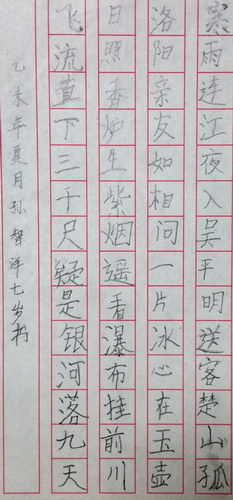 寒雨连江夜入吴平明送客楚山孤
洛阳亲友如相问一片冰心在玉壶
日照香炉生紫烟遥看瀑布挂前川
飞流直下三千尺疑是银河落九天
乙未年夏月孙智洋七岁书